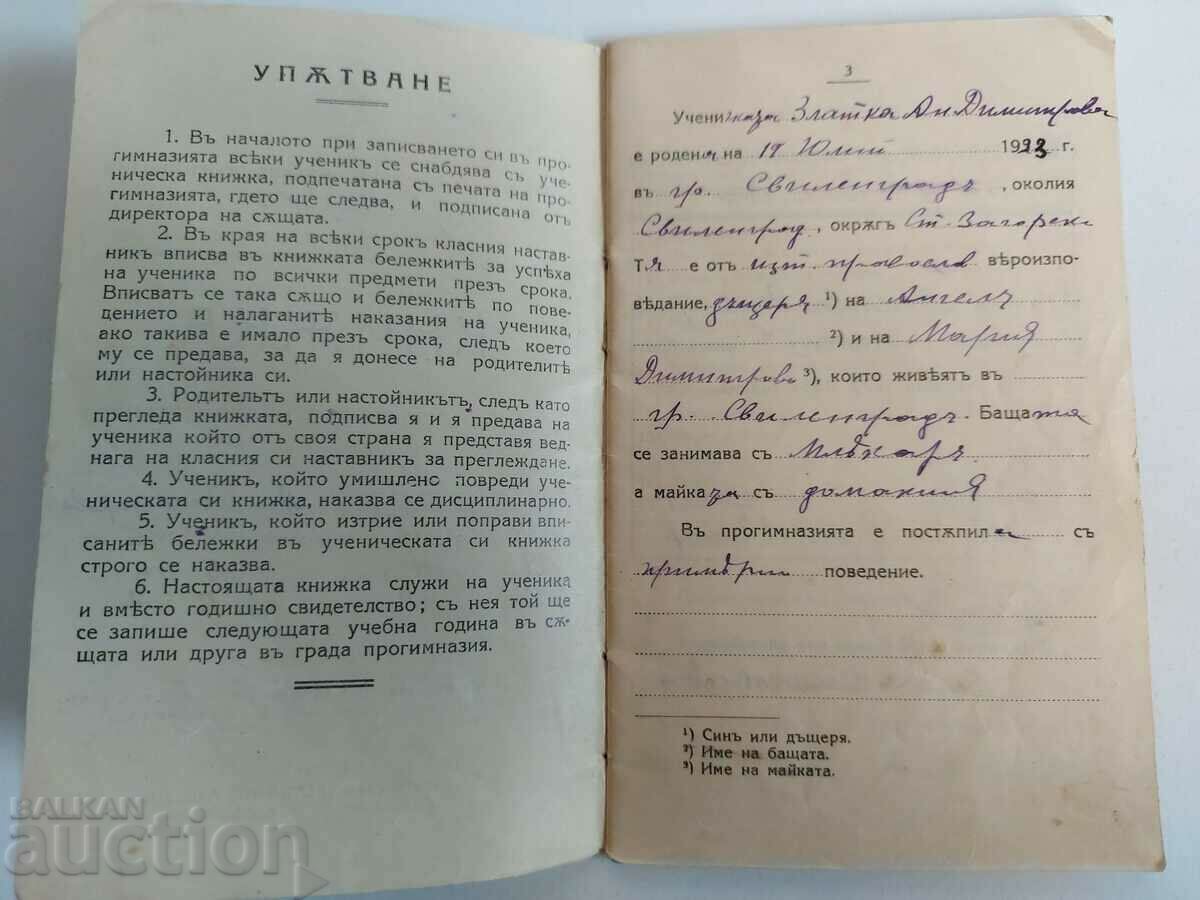 УПѪТВАНЕ
1. Въ началото при записването си въ про-
гимназията всѣки ученикъ се снабдява съ уче-
ническа книжка, подпечатана съ печата на про-
гимназията, гдето ще следва, и подписана отъ
директора на сѫщата.
2. Въ края на всѣки срокъ класния настав-
никъ вписва въ книжката бележкитѣ за успѣха
на ученика по всички предмети презъ срока.
Вписватъ се така сѫщо и бележкитѣ по пове-
дението и налаганитѣ наказания на ученика,
ако такива е имало презъ срока, следъ което
му се предава, за да я донесе на родителитѣ
или настойника си.
3. Родительтъ или настойникътъ, следъ като
прегледа книжката, подписва я и я предава на
ученика който отъ своя страна я представя вед-
нага на класния си наставникъ за преглеждане.
4. Ученикъ, който умишлено повреди уче-
ническата си книжка, наказва се дисциплинарно.
5. Ученикъ, който изтрие или поправи впи-
санитѣ бележки въ ученическата си книжка
строго се наказва.
6. Настоящата книжка служи на ученика
и вмѣсто годишно свидетелство; съ нея той ще
се запише следующата учебна година въ сѫ-
щата или друга въ града прогимназия.
3
Ученичката Златка Ан. Димитрова
е родена на Юлий 1923 г.
въ гр. Свиленградъ, околия
Свиленград, окрѫгъ Ст. Загорски
Тя е отъ изт. правосл вѣроизпо-
ведание, дъщеря ¹) на Ангелъ
²) и на Мария
Димитрова ³), които живѣятъ въ
гр. Свиленградъ. Бащата
се занимава съ Млѣкаръ
а майката съ домакиня
Въ прогимназията е постѫпила съ
примѣрно поведение.
¹) Синъ или дъщеря.
²) Име на бащата.
³) Име на майката.
BALKAN
auction